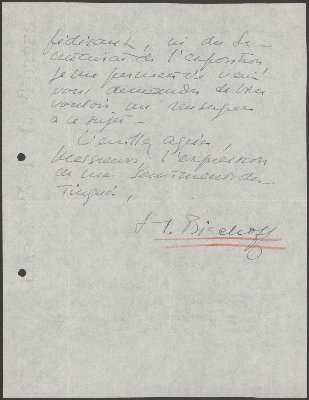 fédérant, ni du Se-
crétariat de l'exposition
je me permets de venir
vous demander de bien
vouloir me renseigner
à ce sujet -
Veuillez agréer,
Messieurs, l'expression
de mes sentiments dis-
tingués,
H. Bischoff